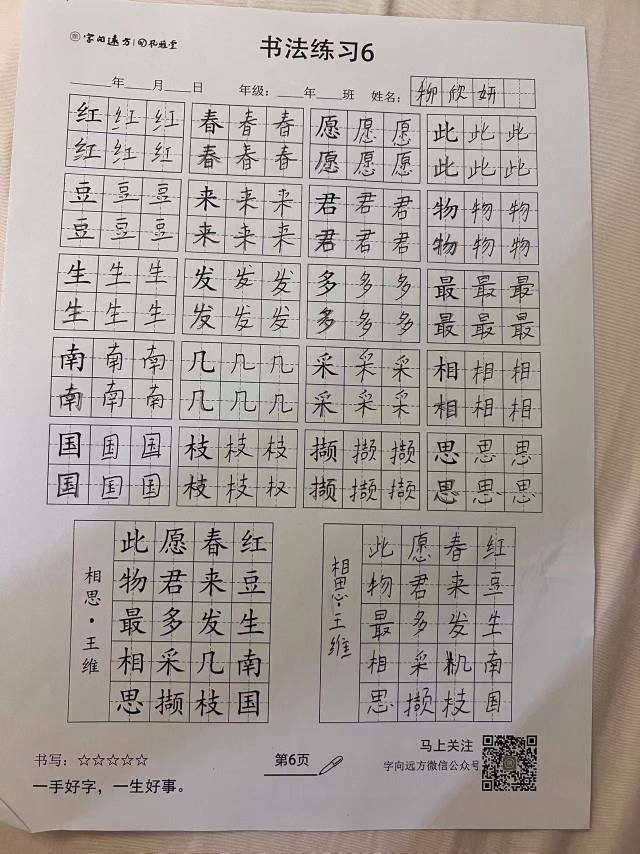 字向远方
书法练习6
____年____月____日 年级：____年____班 姓名：柳欣妍
红红红 春春春 愿愿愿 此此此
红红红 春春春 愿愿愿 此此此
豆豆豆 来来来 君君君 物物物
豆豆豆 来来来 君君君 物物物
生生生 发发发 多多多 最最最
生生生 发发发 多多多 最最最
南南南 几几几 采采采 相相相
南南南 几几几 采采采 相相相
国国国 枝枝枝 撷撷撷 思思思
国国国 枝枝权 撷撷撷 思思思
相思·王维
红豆生南国
春来发几枝
愿君多采撷
此物最相思
相思·王维
红豆生南国
春来发机枝
愿君多采撷
此物最相思
书写：☆☆☆☆☆
一手好字，一生好事。
第6页
马上关注
字向远方微信公众号